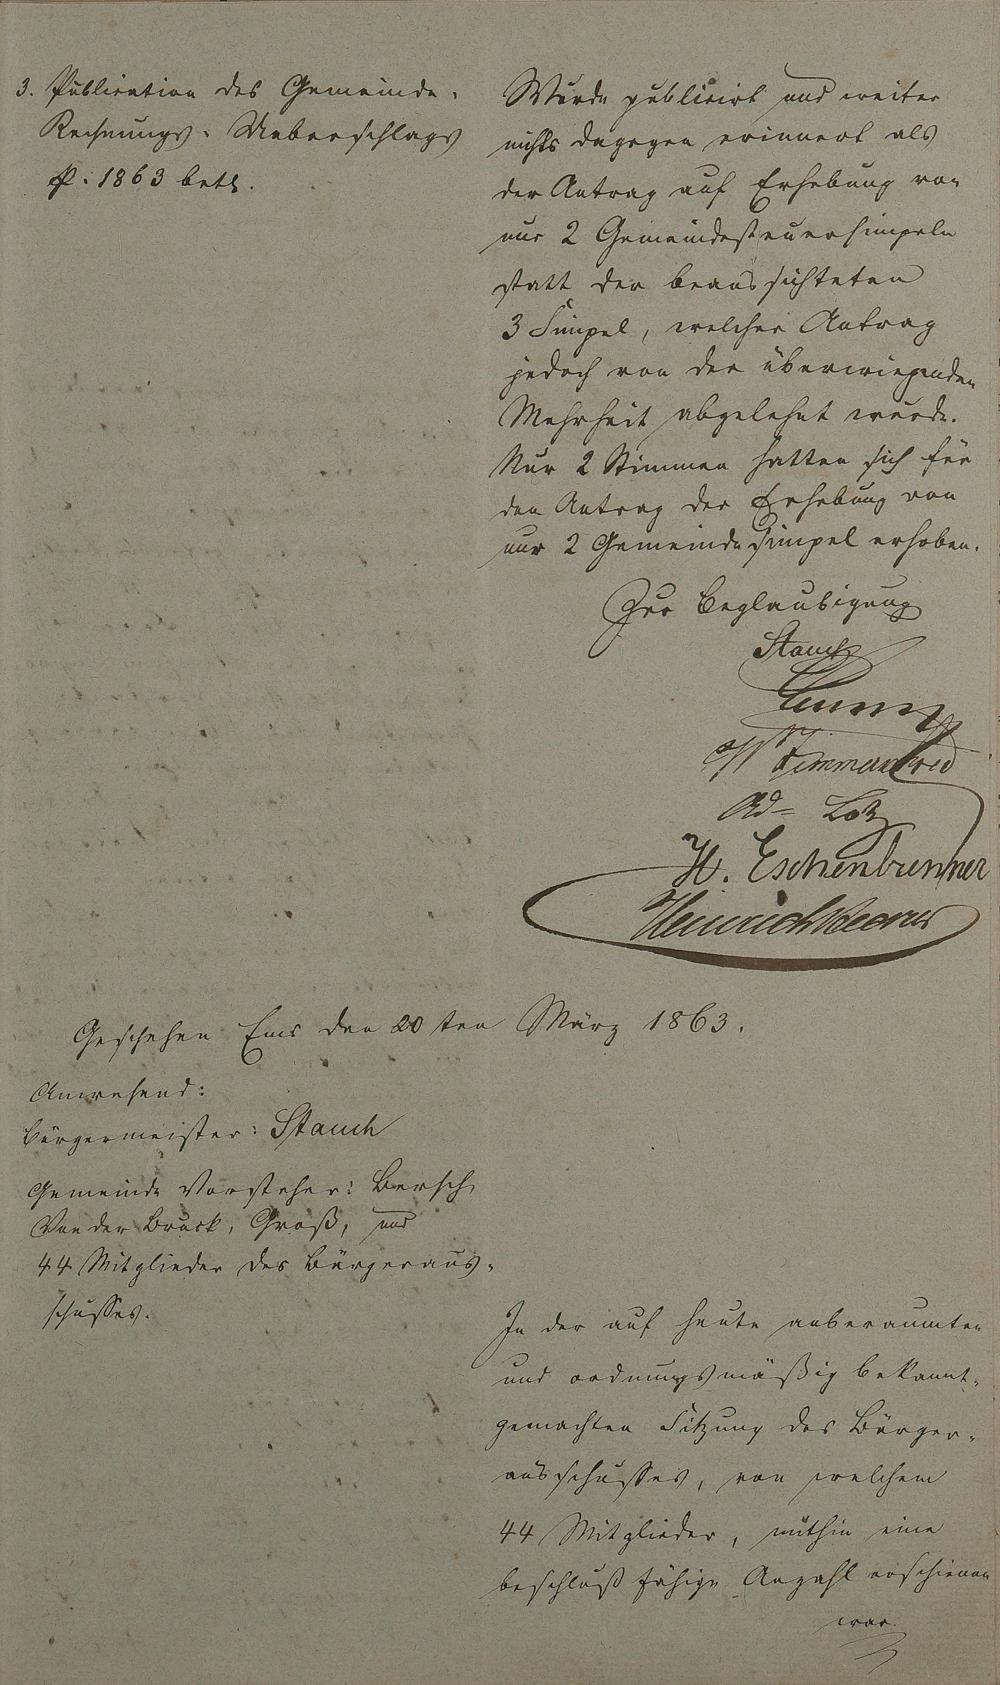 3. Publication des Gemeinde-
Rechnungs-Ueberschlags
p. 1863 betr.
Wurde publicirt und weiter
nichts dagegen erinnert als
der Antrag auf Erhebung von
nur 2 Gemeindesteuersimpeln
statt der beabsichteten
3 Simpel, welcher Antrag
jedoch von der überwiegenden
Mehrheit abgelehnt wurde.
Nur 2 Stimmen hatten sich für
den Antrag der Erhebung von
nur 2 Gemeindesimpel erhoben.
Zur Beglaubigung
Stauch
Ad= Lotz
H. Eschenbrenner
Heinrich
Geschehen Ems den 20ten März 1863.
Anwesend:
Bürgermeister: Stauch
Gemeinde Vorsteher: Bersch,
Von der Bruck, Groß, und
44 Mitglieder des Bürgeraus-
schusses.
In der auf heute anberaumten
und ordnungsmäßig bekannt-
gemachten Sitzung des Bürger-
ausschusses, von welchem
44 Mitglieder, mithin eine
beschlußfähige Anzahl erschienen
war.